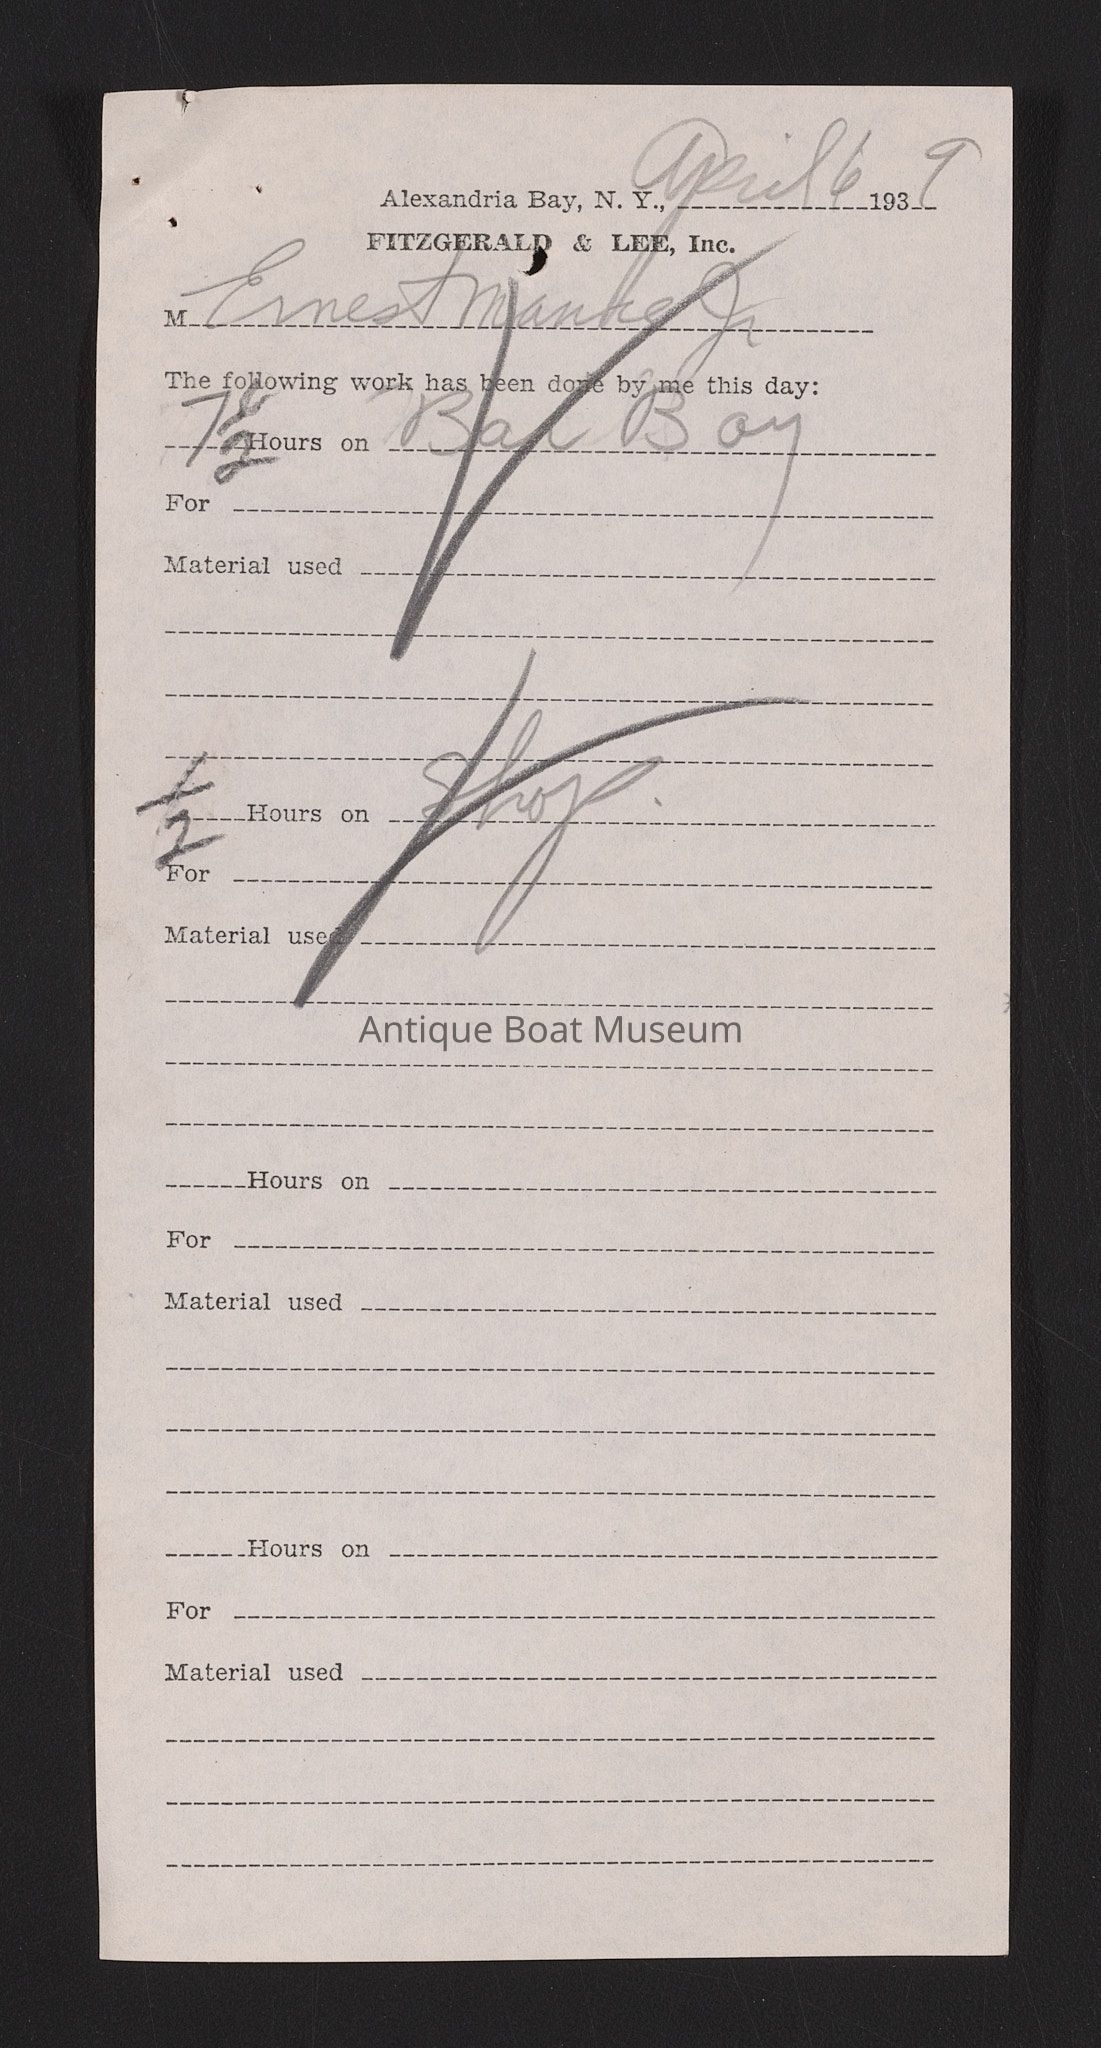 Alexandria Bay, N. Y., April 6 1939
FITZGERALD & LEE, Inc.
M Ernest Manke Jr
The following work has been done by me this day:
7 1/2 Hours on Bar Boy
For
Material used
1/2 Hours on Shop.
For
Material used
Antique Boat Museum
Hours on
For
Material used
Hours on
For
Material used